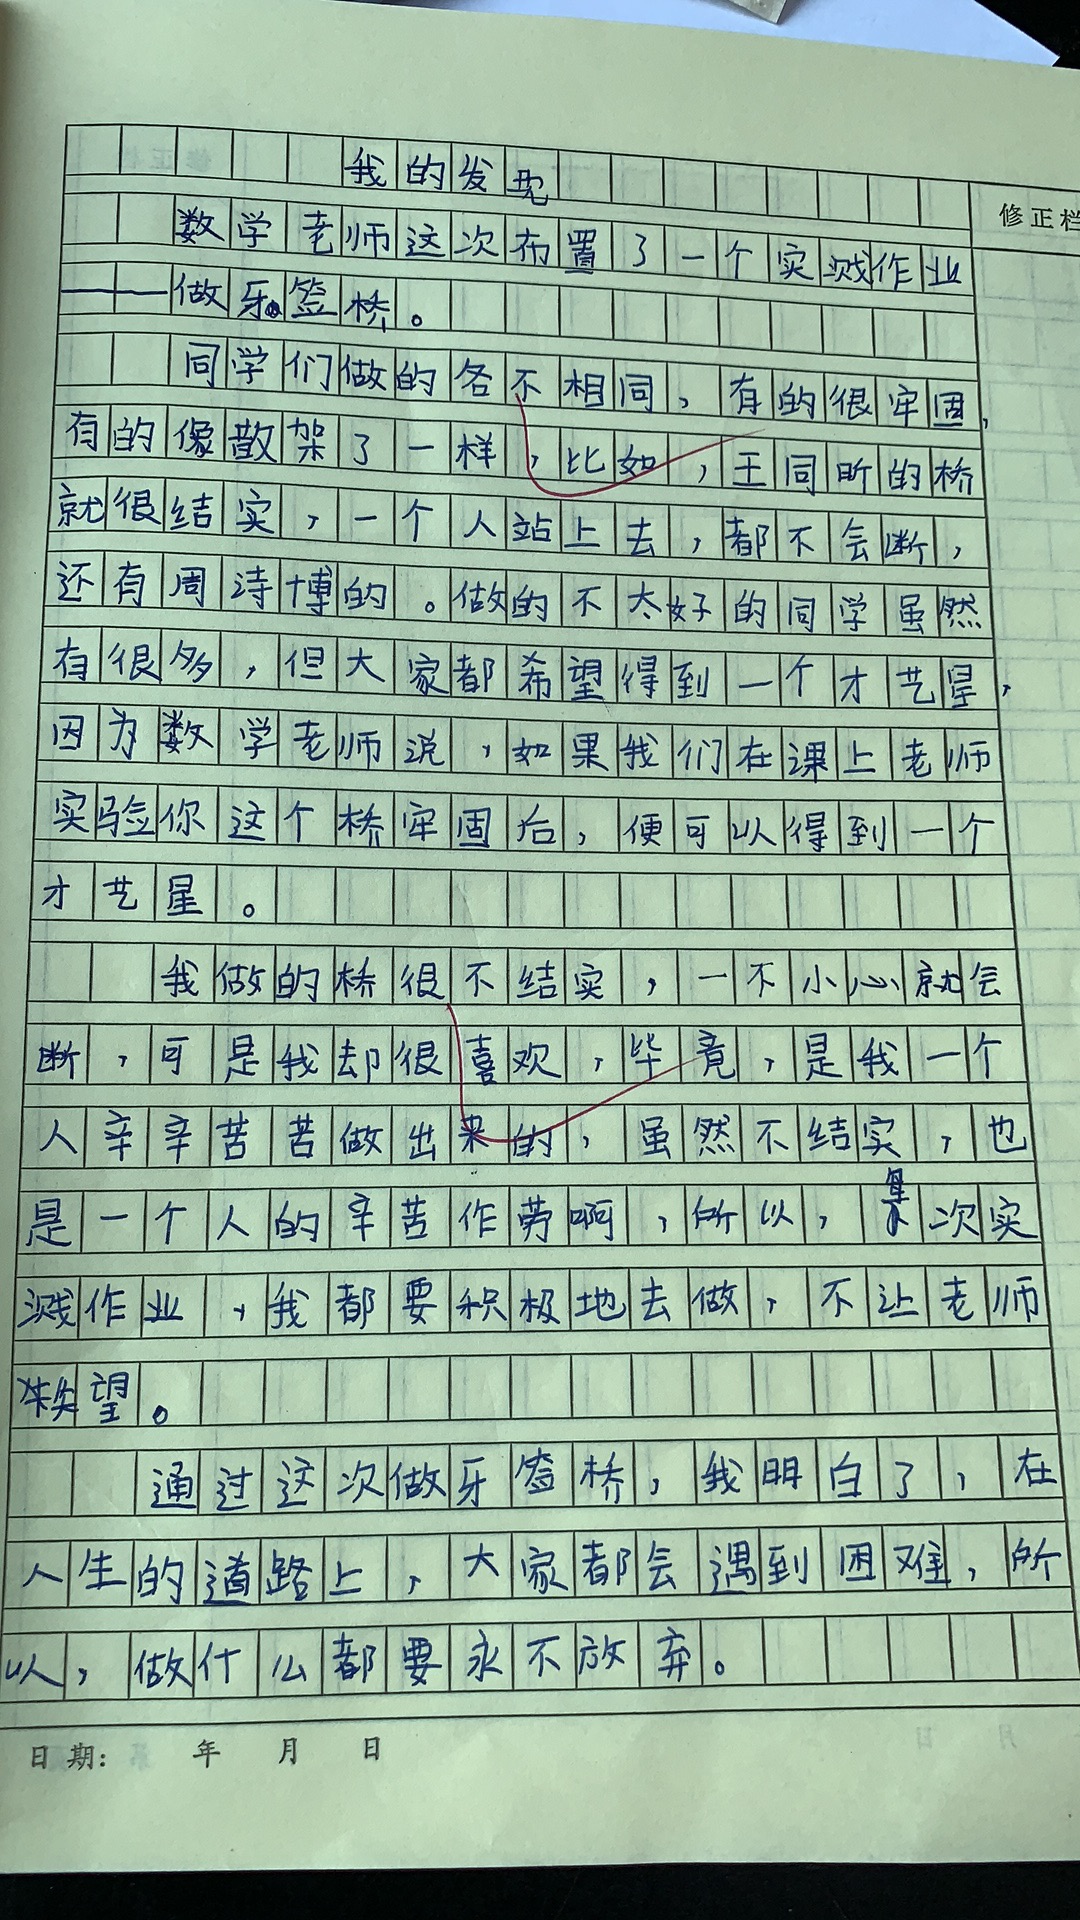 我的发现
修正栏
数学老师这次布置了一个实践作业
——做牙签桥。
同学们做的各不相同，有的很牢固，
有的像散架了一样，比如，王同昕的桥
就很结实，一个人站上去，都不会断，
还有周诗博的。做的不太好的同学虽然
有很多，但大家都希望得到一个才艺星，
因为数学老师说，如果我们在课上老师
实验你这个桥牢固后，便可以得到一个
才艺星。
我做的桥很不结实，一不小心就会
断，可是我却很喜欢，毕竟，是我一个
人辛辛苦苦做出来的，虽然不结实，也
是一个人的辛苦作劳啊，所以，每次实
践作业，我都要积极地去做，不让老师
失望。
通过这次做牙签桥，我明白了，在
人生的道路上，大家都会遇到困难，所
以，做什么都要永不放弃。
日期： 年 月 日